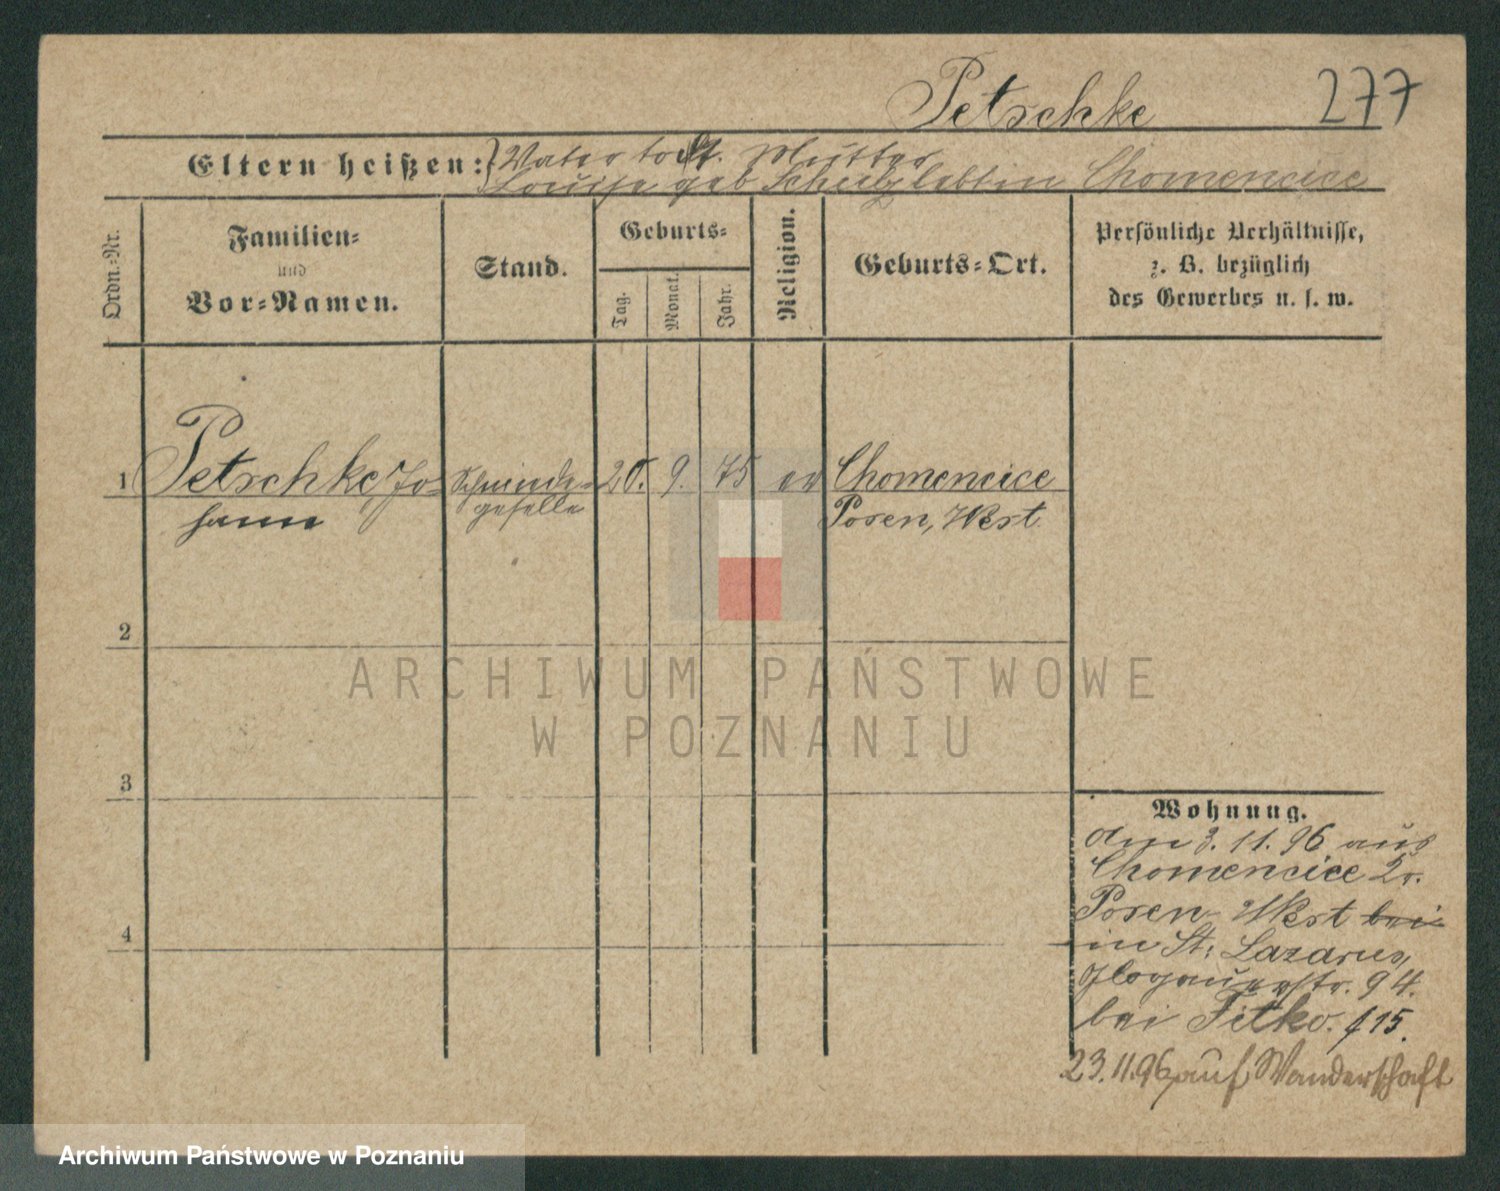 Petschke 277
Eltern heißen: Vater todt. Mutter
Louise geb Schulz lebt in Chomencice
Ordn.-Nr.
Familien-
und
Vor-Namen.
Stand.
Geburts-
Tag.
Monat.
Jahr.
Religion.
Geburts-Ort.
Persönliche Verhältnisse,
z. B. bezüglich
des Gewerbes u. s. w.
1 Petschke Jo- 20. 9. 75 ev Chomencice
hann geselle Posen, West
2
3
4
Wohnung.
Am 3.11.96 aus
Chomencice Kr.
Posen-West bei
in St. Lazarus,
Glogauerstr. 94.
bei Titko. f 15.
23.11.96 auf Wanderschaft
ARCHIWUM PAŃSTWOWE
W POZNANIU
Archiwum Państwowe w Poznaniu